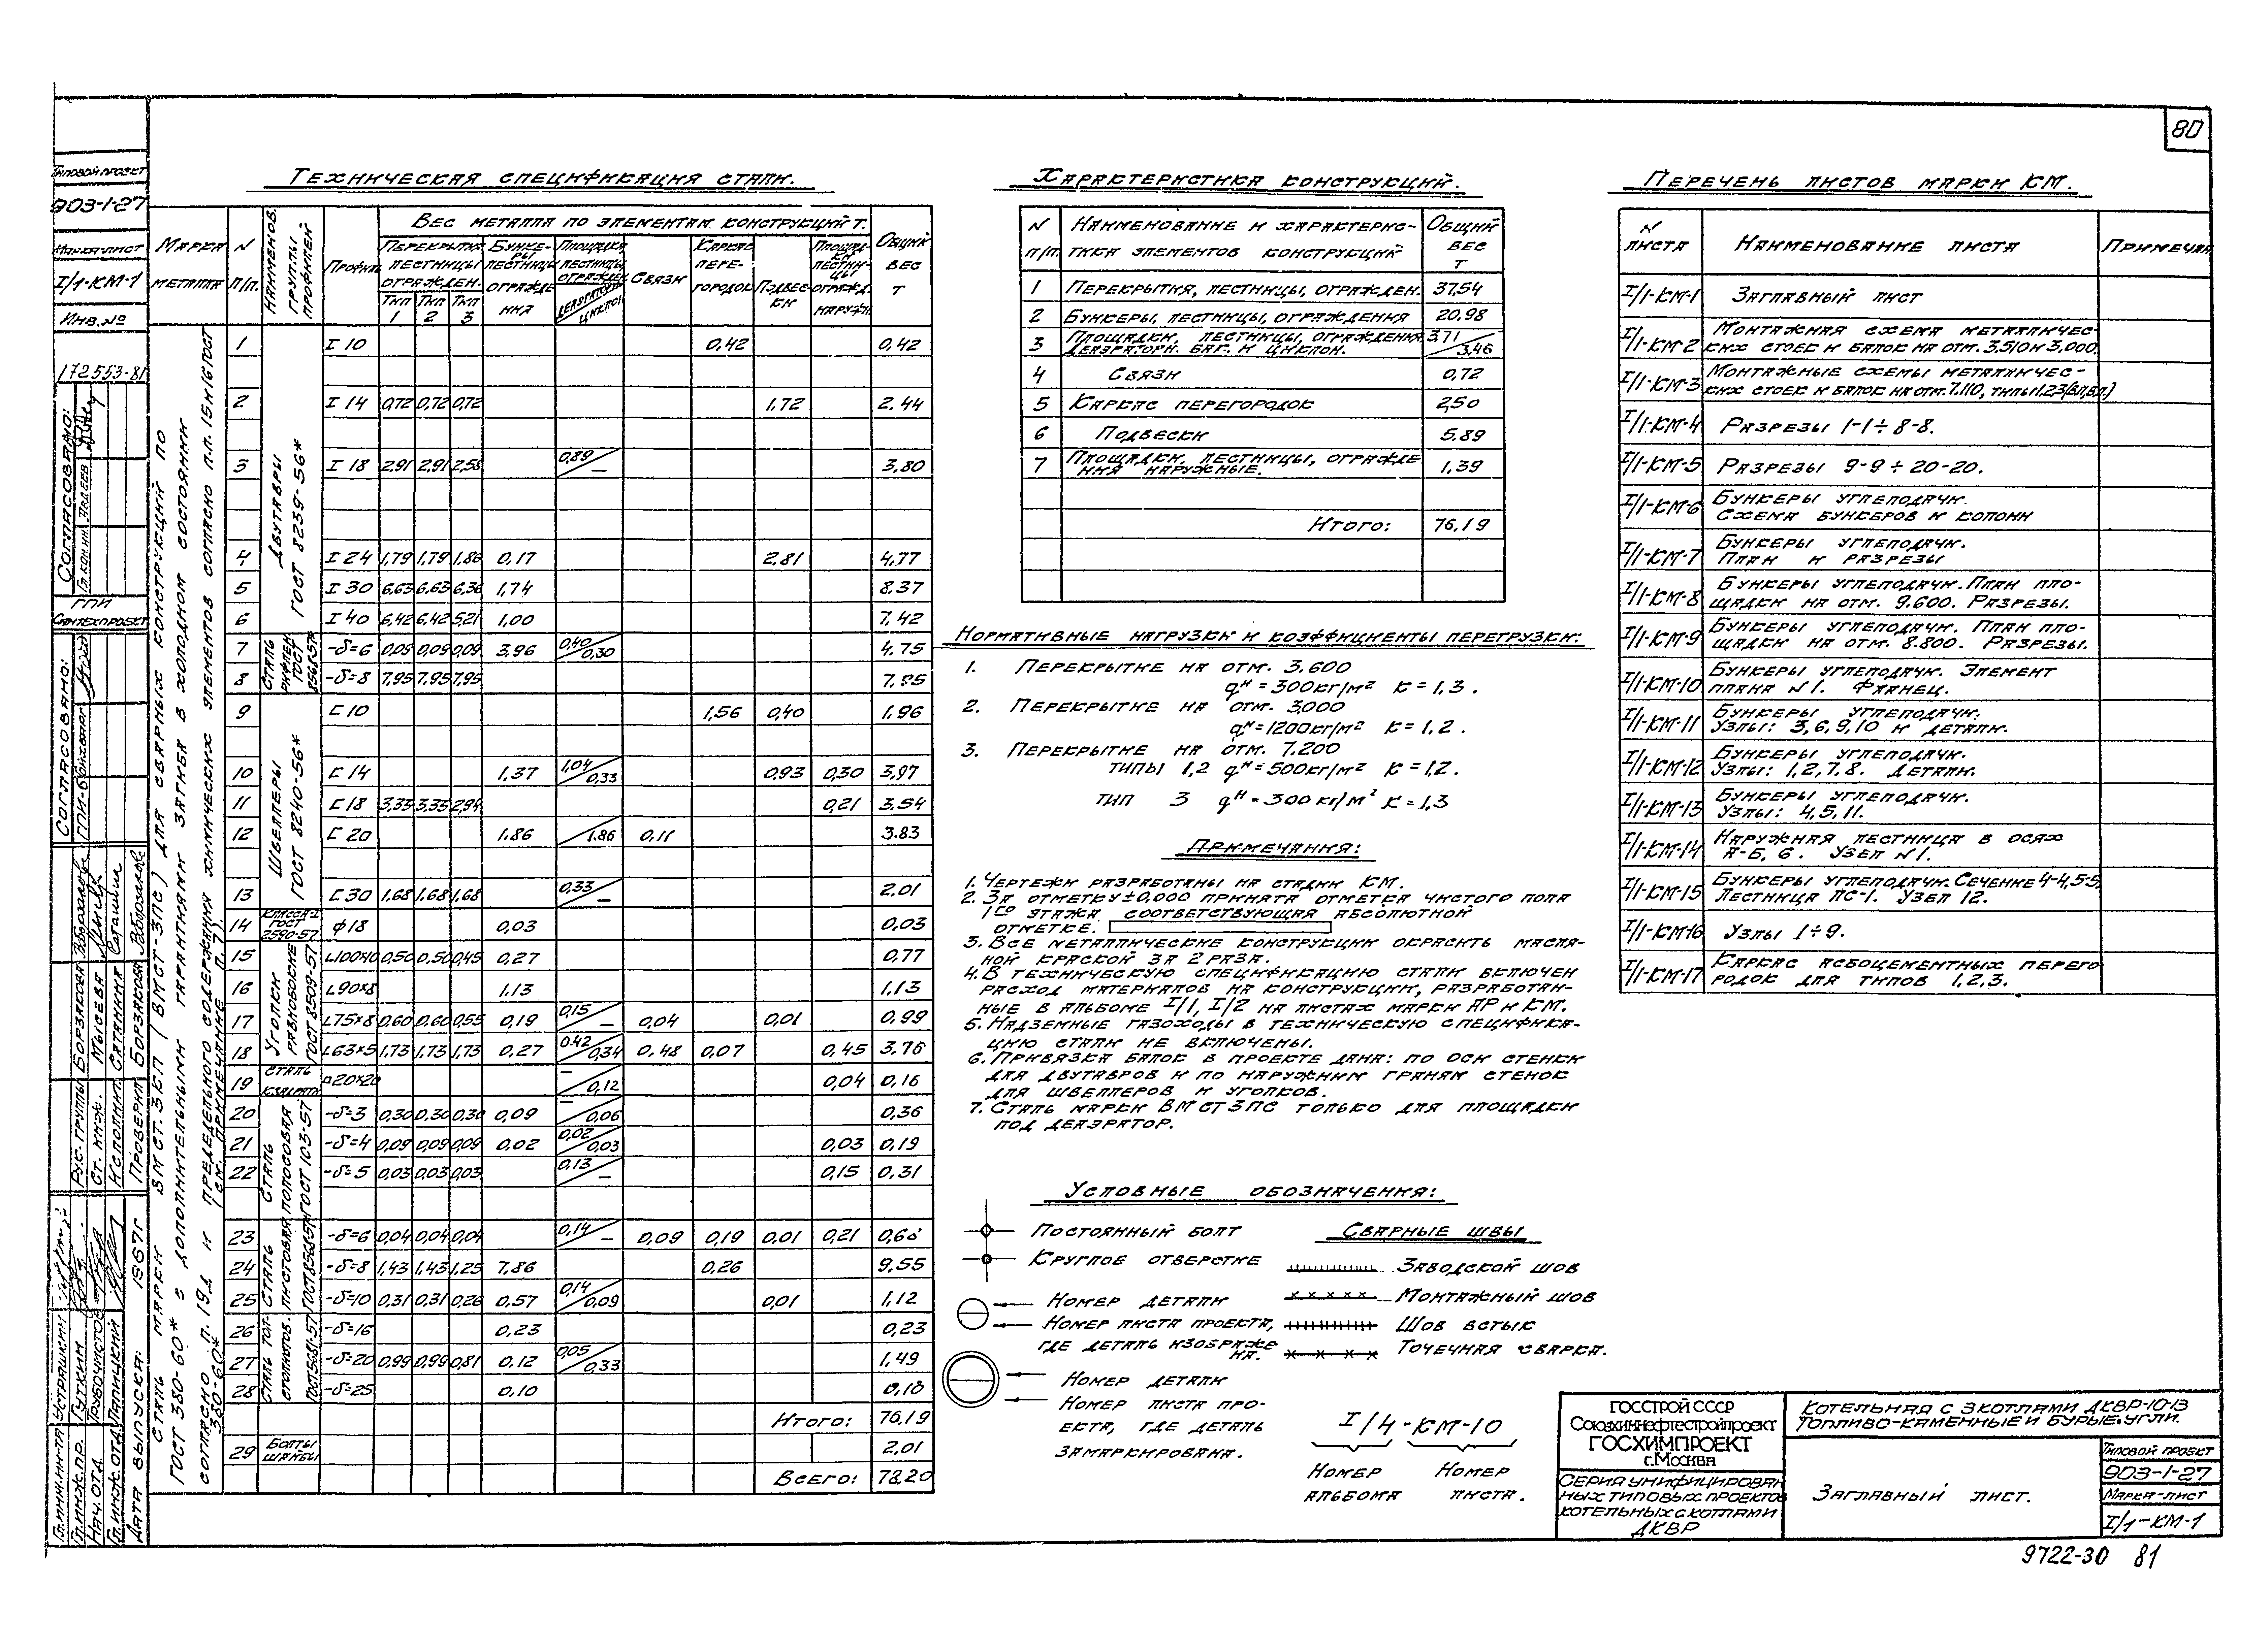 80
Типовой проект
903-1-27
Марка-лист
I/1-КМ-1
Инв. №
172553-81
Согласовано:
ГПИ
Сантехпроект
Согласовано:
Рук. группы Борзакова
Ст. инж. Мысева
Исполнит. Сатанина
Проверил Борзакова
Гл. инж. ин-та Устряшкин
Гл. инж. пр. Гуткин
Нач. отд. Трубочистов
Гл. инж. отд. Лапицкий
Дата выпуска: 1967г
Техническая спецификация стали.
Марка металла
N п/п.
Наименов. группы профилей
Профиль
Вес металла по элементам конструкций т.
Общий вес т
Перекрытия лестницы огражден.
Тип 1 Тип 2 Тип 3
Бункеры лестницы ограждения
Площадки, лестницы, огражден. деаэратор/циклон
Связи
Каркас перегородок
Подвески
Площадки лестницы огражд. наружн.
Сталь марки ВМСт.3кп (ВМСт-3пс) для сварных конструкций по
ГОСТ 380-60* с дополнительными гарантиями загиба в холодном состоянии
согласно п. 19д и предельного содержания химических элементов согласно п.п. 15 и 16 ГОСТ
380-60* (см. примечание п.7)
Двутавры ГОСТ 8239-56*
1 I 10 0,42 0,42
2 I 14 0,72 0,72 0,72 1,72 2.44
3 I 18 2,91 2,91 2,58 0,89/— 3,80
4 I 24 1,79 1,79 1,86 0,17 2.81 4,77
5 I 30 6,63 6,63 6,36 1,74 8.37
6 I 40 6,42 6,42 5,21 1,00 7.42
Сталь рифлен ГОСТ 8568-57*
7 -δ=6 0,09 0,09 0,09 3,96 0,40/0,30 4.75
8 -δ=8 7,95 7,95 7,95 7.95
Швеллеры ГОСТ 8240-56*
9 [ 10 1,56 0,40 1,96
10 [ 14 1,37 1,04/0,33 0,93 0,30 3,97
11 [ 18 3,33 3,33 2,94 0,21 3.54
12 [ 20 1.86 /1.86 0,11 3.83
13 [ 30 1,68 1,68 1,68 0,33/— 2.01
Класса-I ГОСТ 2590-57
14 ф18 0,03 0,03
Уголки равнобокие ГОСТ 8509-57
15 L100×10 0,50 0,50 0,45 0,27 0,77
16 L90×8 1,13 1,13
17 L75×8 0,60 0,60 0,55 0,19 0,15/— 0,04 0,01 0,99
18 L63×5 1,73 1,73 1,73 0,27 0.42/0,34 0,48 0,07 0,45 3.76
Сталь квадратн
19 □20×20 —/0,12 0,04 0,16
Сталь полосовая ГОСТ 103-57
20 -δ=3 0,30 0,30 0,30 0,09 —/0,06 0,36
21 -δ=4 0,09 0,09 0,09 0,02 0,02/0,03 0,03 0,19
22 -δ=5 0,03 0,03 0,03 0,13/— 0,15 0,31
Сталь листовая ГОСТ 5681-57
23 -δ=6 0,04 0,04 0,04 0,14/— 0,09 0,19 0,01 0,21 0,68
24 -δ=8 1,43 1,43 1,25 7,86 0,26 9.55
25 -δ=10 0,31 0,31 0,26 0,57 0,14/0,09 0,01 1,12
Сталь толстолистов. ГОСТ 5681-57
26 -δ=16 0,23 0,23
27 -δ=20 0,99 0,99 0,81 0,12 0,05/0,33 1,49
28 -δ=25 0,10 0,10
Итого: 76,19
29 Болты шайбы 2.01
Всего: 78.20
Характеристика конструкций.
N п/п. Наименование и характеристика элементов конструкций Общий вес т
1 Перекрытия, лестницы, огражден. 37,54
2 Бункеры, лестницы, ограждения 20,98
3 Площадки, лестницы, ограждения деаэраторн. баг. и циклон. 3.71/3.46
4 Связи 0,72
5 Каркас перегородок 2,50
6 Подвески 5.89
7 Площадки, лестницы, ограждения наружные. 1,39
Итого: 76,19
Нормативные нагрузки и коэффициенты перегрузки:
1. Перекрытие на отм. 3,600
qᴴ=300кг/м² К=1,3.
2. Перекрытие на отм. 3,000
qᴴ=1200кг/м² К=1,2.
3. Перекрытие на отм. 7.200
типы 1,2 qᴴ=500кг/м² К=1,2.
тип 3 qᴴ=300 кг/м² К=1,3
Примечания:
1. Чертежи разработаны на стадии КМ.
2. За отметку ±0,000 принята отметка чистого пола
1го этажа соответствующая абсолютной
отметке.
3. Все металлические конструкции окрасить масля-
ной краской за 2 раза.
4. В техническую спецификацию стали включен
расход материалов на конструкции, разработан-
ные в альбоме I/1, I/2 на листах марки АР и КМ.
5. Надземные газоходы в техническую специфика-
цию стали не включены.
6. Привязка балок в проекте дана: по оси стенки
для двутавров и по наружним граням стенок
для швеллеров и уголков.
7. Сталь марки ВМСт3пс только для площадки
под деаэратор.
Условные обозначения:
Постоянный болт
Круглое отверстие
Номер детали
Номер листа проекта,
где деталь изображе
на.
Номер детали
Номер листа про-
екта, где деталь
замаркирована.
Сварные швы
Заводской шов
Монтажный шов
Шов встык
Точечная сварка.
I/4-КМ-10
Номер альбома
Номер листа.
Перечень листов марки КМ.
N листа Наименование листа Примечан
I/1-КМ-1 Заглавный лист
I/1-КМ-2 Монтажная схема металличес-
ких стоек и балок на отм. 3.510 и 3,000.
I/1-КМ-3 Монтажные схемы металличес-
ких стоек и балок на отм. 7.110, типы 1,2,3 (вл,вп.)
I/1-КМ-4 Разрезы 1-1÷8-8.
I/1-КМ-5 Разрезы 9-9÷20-20.
I/1-КМ-6 Бункеры углеподачи.
Схема бункеров и колонн
I/1-КМ-7 Бункеры углеподачи.
План и разрезы
I/1-КМ-8 Бункеры углеподачи. План пло-
щадки на отм. 9.600. Разрезы.
I/1-КМ-9 Бункеры углеподачи. План пло-
щадки на отм. 8.800. Разрезы.
I/1-КМ-10 Бункеры углеподачи. Элемент
плана №1. Фланец.
I/1-КМ-11 Бункеры углеподачи.
Узлы: 3,6,9,10 и детали.
I/1-КМ-12 Бункеры углеподачи.
Узлы: 1,2,7,8. Детали.
I/1-КМ-13 Бункеры углеподачи.
Узлы: 4,5,11.
I/1-КМ-14 Наружная лестница в осях
А-Б, 6. Узел №1.
I/1-КМ-15 Бункеры углеподачи. Сечение 4-4,5-5,
Лестница ЛС-1. Узел 12.
I/1-КМ-16 Узлы 1÷9.
I/1-КМ-17 Каркас асбоцементных перего
родок для типов 1,2,3.
ГОССТРОЙ СССР
Союзхимнефтестройпроект
ГОСХИМПРОЕКТ
г. Москва
Серия унифицирован
ных типовых проектов
котельных с котлами
ДКВР
Котельная с 3 котлами ДКВР-10-13
Топливо-каменные и бурые угли.
Заглавный лист.
Типовой проект
903-1-27
Марка-лист
I/1-КМ-1
9722-30 81